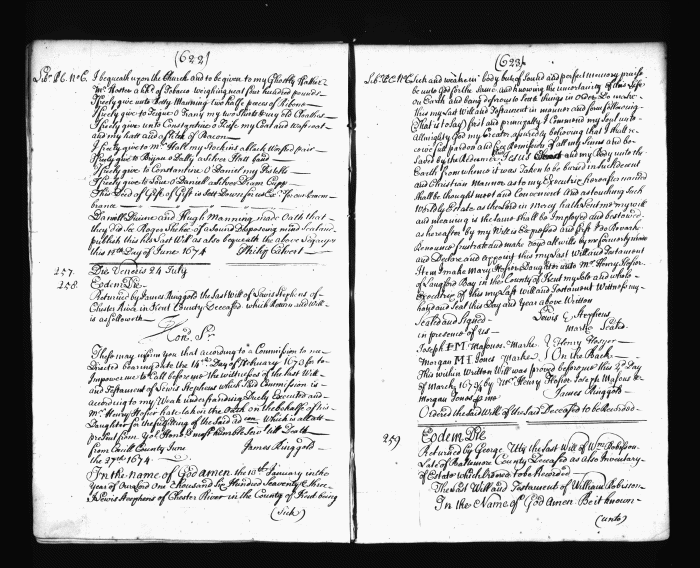 (622)
I bequeath upon the Church and to be given to my Ghostly Father
Mr. Foster a hhd of Tobacco weighing neat four hundred pounds
I freely give unto Betty Manning two halfe peeces of Ribons
I freely give to Teigue O my two Shirts & my old Cloathes
I freely give unto Constantine O Keife my Coat and Wastcoat
and my hatt and a of Bacon
I freely give to Mr. Hall my Stockins a black Worsted pair
I freely give to Bryan o Daly a Silver Hatt band
I freely give to Constantine O Daniel my Pistolls
I freely give to O Daniell a Silver Dram Cupp
This Deed of Gift
brance
Daniell and Hugh Manning made Oath that
they did See Roger Shehee of a Sound Disposing mind Seal and
publish this his Last Will as also bequeath the above
this 12th Day of June 1674 Philip Calvert
257. Die Veneris 24 July
258. Eodem Die
Returned by James Ringgold the Last Will of Lewis Stephens of
Chester River in Kent County Deceased which Return and Will
is as followeth
Hon. Sr.
These may inform you that according to a Commission to me
Directed bearing date the 14th Day of February 1673 for to
Impower me to before me the wittnesses of the last Will
and Testament of Lewis Stephens which S'd Commission is
according to my Weak understanding Duely Executed and
Mr. Henry Hosier hath taken the Oath on the behalfe of his
Daughter for the fulfilling of the Said as which is all att
present from Yor Honrs most humble Servt till Death
from County June James Ringgold
the 27th 1674
In the name of God amen the 10th January in the
Year of our Lord One thousand Six Hundred Seaventy & three
I Lewis Stephens of Chester River in the County of Kent being
(Sick)
(623)
Sick and weake in body but of Sound and perfect memory praise
be unto God for the Same and knowing the uncertainty of this Life
on Earth and being desirous to Settle things in Order Do make
this my Last Will and Testament in manner and form following
(That is to say) first and principally I commend my Soul unto
Allmighty God my Creator assuredly believing that I shall re-
ceive full pardon and free Remission of all my Sinns and be
Saved by the Redeemer Jesus Christ and my Body unto the
Earth from whence it was Taken to be buried in Such decent
and Christian Manner as to my Executrix hereafter named
Shall be thought meet and Convenient And as touching Such
Worldly Estate as the Lord in Mercy hath Sent me my will
and meaning is the Same shall be Imployed and bestowed
as hereafter by my Will is Expressed and first I do Revoke
Renounce frustrate and make Void all wills by me formerly made
and Declare and appoint this my Last Will and Testament
Item I make Mary Hosier Daughter unto Mr. Henry Hosier
of Langford Bay in the County of Kent my Sole and whole
Executrix of this my Last will and Testament Wittness my
hand and Seal this Day and Year above Written
Sealed and Signed Lewis Stephens
in presence of us marke Seald
Joseph marke Henry Hosyer
Morgan M J Jones Marke On the Back
This within Written Will was proved before me this Day
of March 1673 by Mr. Henry Hosier Joseph &
Morgan Jones p me James Ringgold
Ordered the Said Will of the Said Deceased to be Recorded
259 Eodem Die
Returned by George Utty the Last Will of Wm. Robison
Late of Baltemore County Deceased as also Inventary
of Estate which Ordered to be Recorded
The Last Will and Testament of William Robison
In the Name of God Amen Be it known
(unto)